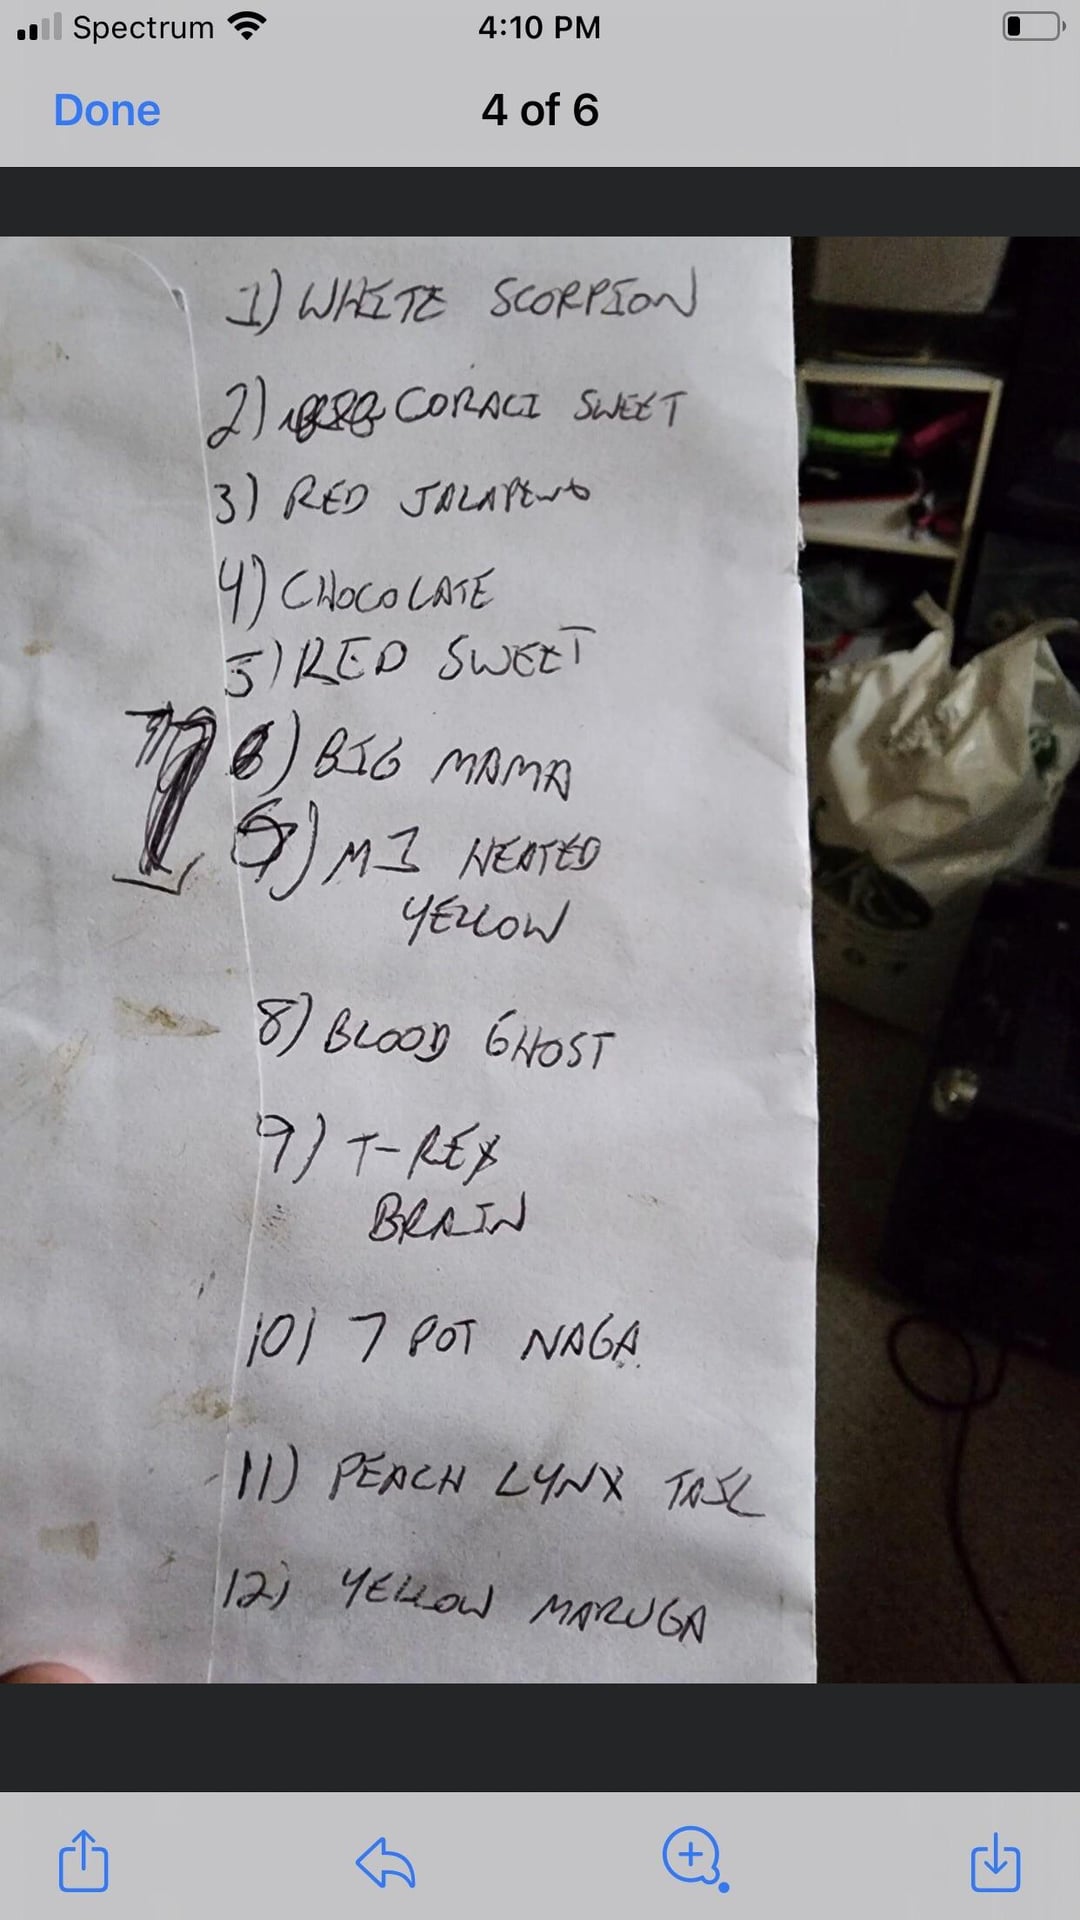 Spectrum
4:10 PM
Done
4 of 6
1) WHITE SCORPION
2) CORACI SWEET
3) RED JALAPENO
4) CHOCOLATE
5) RED SWEET
7 6) BIG MAMA
6) MI HEATED
YELLOW
8) BLOOD GHOST
9) T-REX
BRAIN
10) 7 POT NAGA
11) PEACH LYNX TAIL
12) YELLOW MARUGA